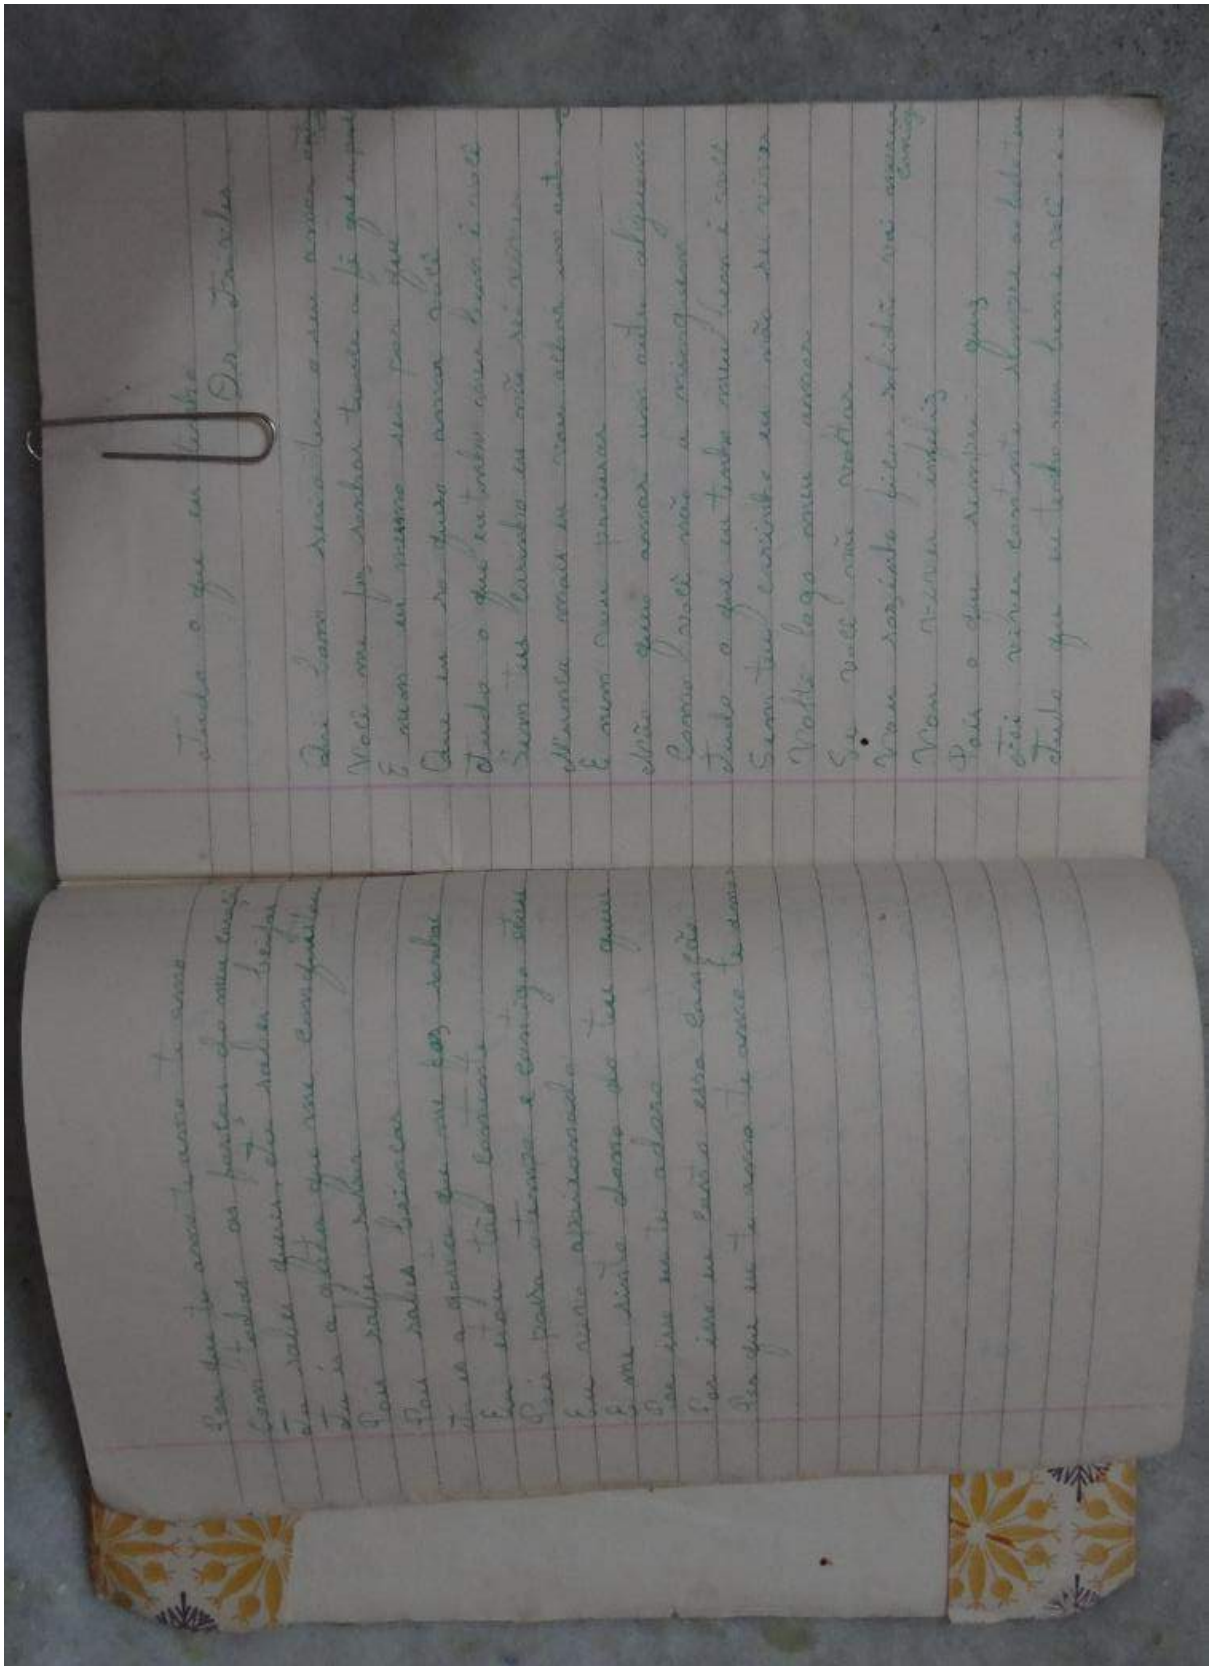 Por que te amo te amo te amo
Com todas as forças do meu coraçã
Tu sabe querer tu sabes beijar
Tu és a garota que me
Pois sabes
Pois sabes brincar
Tu és a garota que me faz sonhar
Eu estou tão contente
Pois passa o tempo e contigo estou
Eu vivo apaixonado
E me sinto dono do teu amor
Por que eu te adoro
Por isso eu canto essa canção
Por que eu te amo te amo te amo
Tudo o que eu tenho
Os
Que bom seria ter o seu amor
Você me fez sonhar
E nem eu mesmo sei por que
Que eu só quero amar você
Tudo o que eu tenho meu bem é você
Sem teu carinho eu não sei viver
Nunca mais eu vou achar um outro
E nem vou procurar
Não quero amar um outro alguem
Como você não a ninguem
Tudo o que eu tenho meu bem é você
Sem teu carinho eu não sei viver
Volte logo meu amor
Se você não voltar
Vou sozinho ficar solidão vai
comig
Vou viver infeliz
Pois o que sempre quiz
Foi viver contente
Tudo que eu tenho meu bem é você...